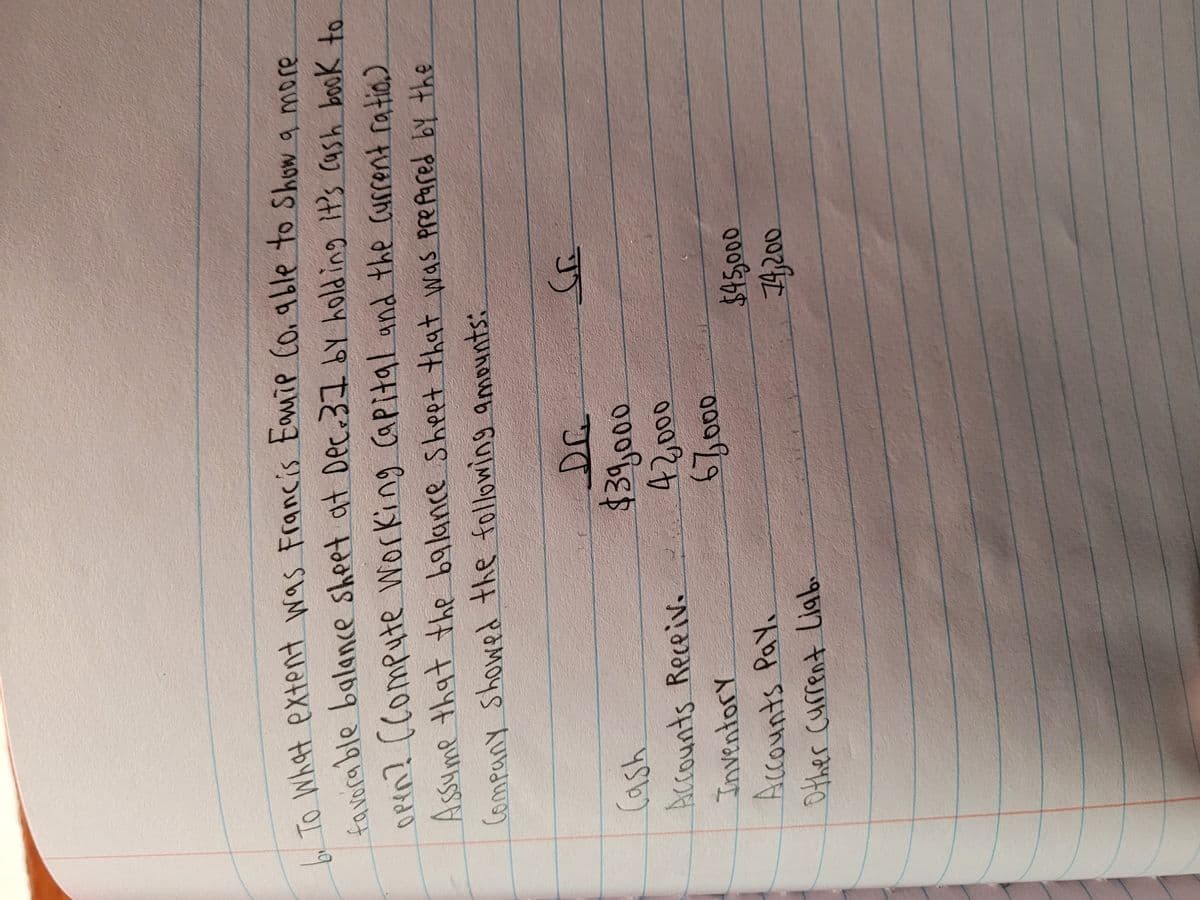 b. To What extent was Francis Equip Co. able to show a more
favorable balance sheet at Dec. 31 by holding it's cash book to
open? (Compute working capital and the current ratio.)
Assume that the balance sheet that was prepared by the
Company showed the following amounts:
Dr. Cr.
Cash $39,000
Accounts Receiv. 42,000
Inventory 67,000
Accounts Pay. $45,000
Other Current Liab. 74,200